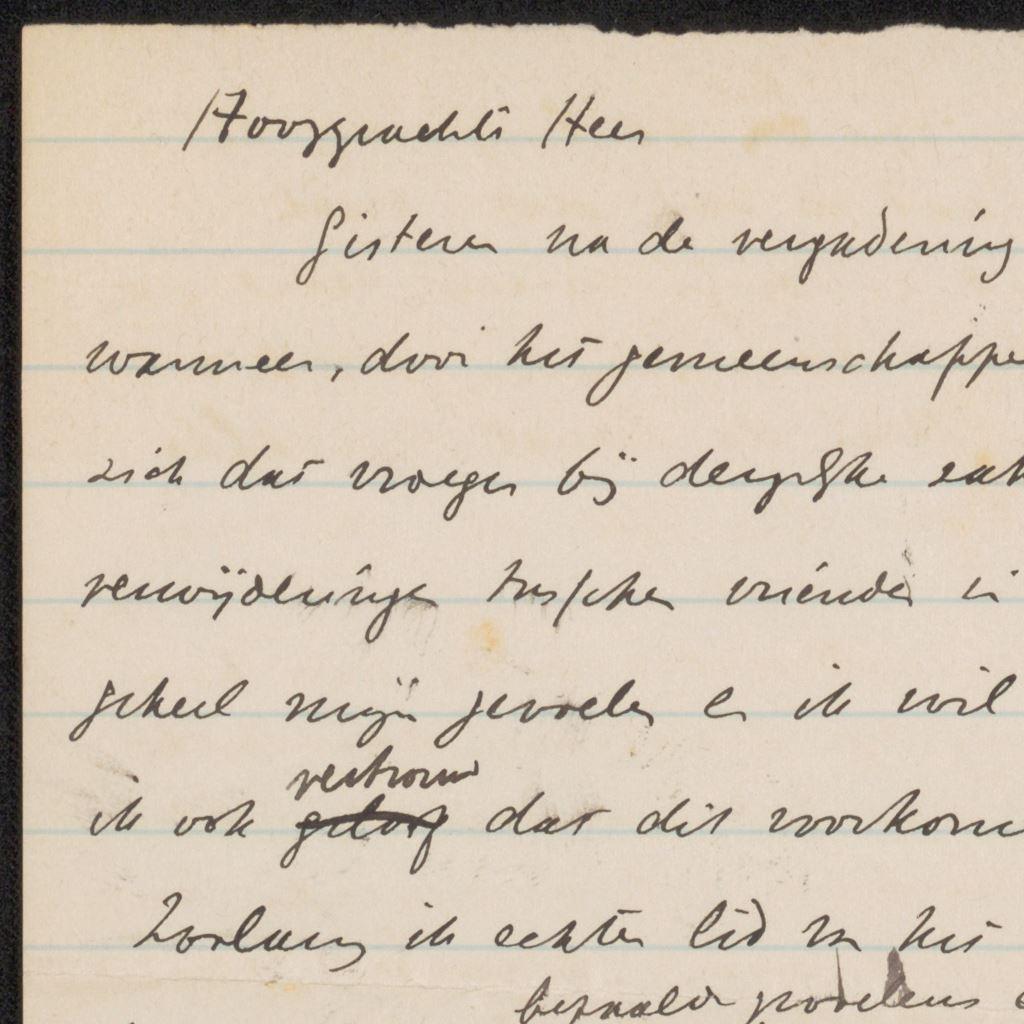 Hooggeachte Heer
Gisteren na de vergadering
wanneer, door het gemeenschappe
zich dat vroeger bij dergelijke
verwijderingen tusschen vrienden in
geheel mijn gevoelen en ik wil
vertrouw
ik ook geloof dat dit voorkom
Zoolang ik echter lid van het
bepaalde